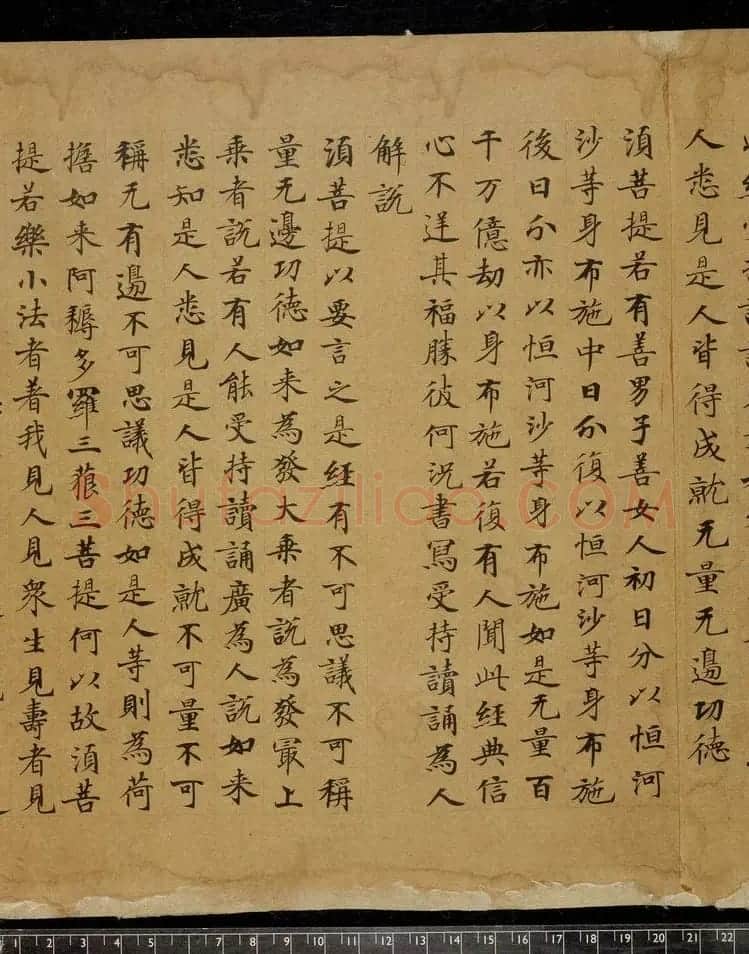 人悉見是人皆得成就无量无邊功德
須菩提若有善男子善女人初日分以恒河
沙等身布施中日分復以恒河沙等身布施
後日分亦以恒河沙等身布施如是无量百
千万億劫以身布施若復有人聞此經典信
心不逆其福勝彼何況書寫受持讀誦為人
解說
須菩提以要言之是經有不可思議不可稱
量无邊功德如来為發大乘者說為發最上
乘者說若有人能受持讀誦廣為人說如来
悉知是人悉見是人皆得成就不可量不可
稱无有邊不可思議功德如是人等則為荷
擔如来阿耨多羅三藐三菩提何以故須菩
提若樂小法者著我見人見衆生見壽者見
shufaziliao.COM
1 2 3 4 5 7 8 9 10 11 12 13 14 15 16 17 18 19 20 21 22